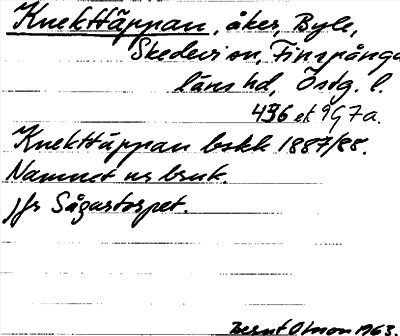 Knekttäppan, åker, Byle,
Skedevi sn, Finspånga
läns hd, Östg. l.
436 ek 9G 7a.
Knekttäppan bskk 1887/88.
Namnet ur bruk.
Jfr Sågartorpet.
Bernt Olsson 1963.